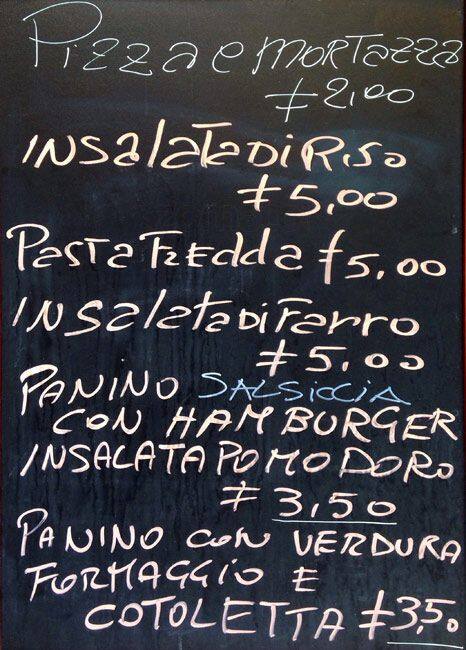 Pizza e MORTazza
€ 2,00
INSalata Di Riso
€ 5,00
Pasta Fredda € 5.00
INSalata Di Farro
€ 5.00
PANINO SALSICCIA
CON HAMBURGER
INSALATA POMODORO
€ 3,50
PANINO CON VERDURA
FORMAGGIO E
COTOLETTA € 3,50